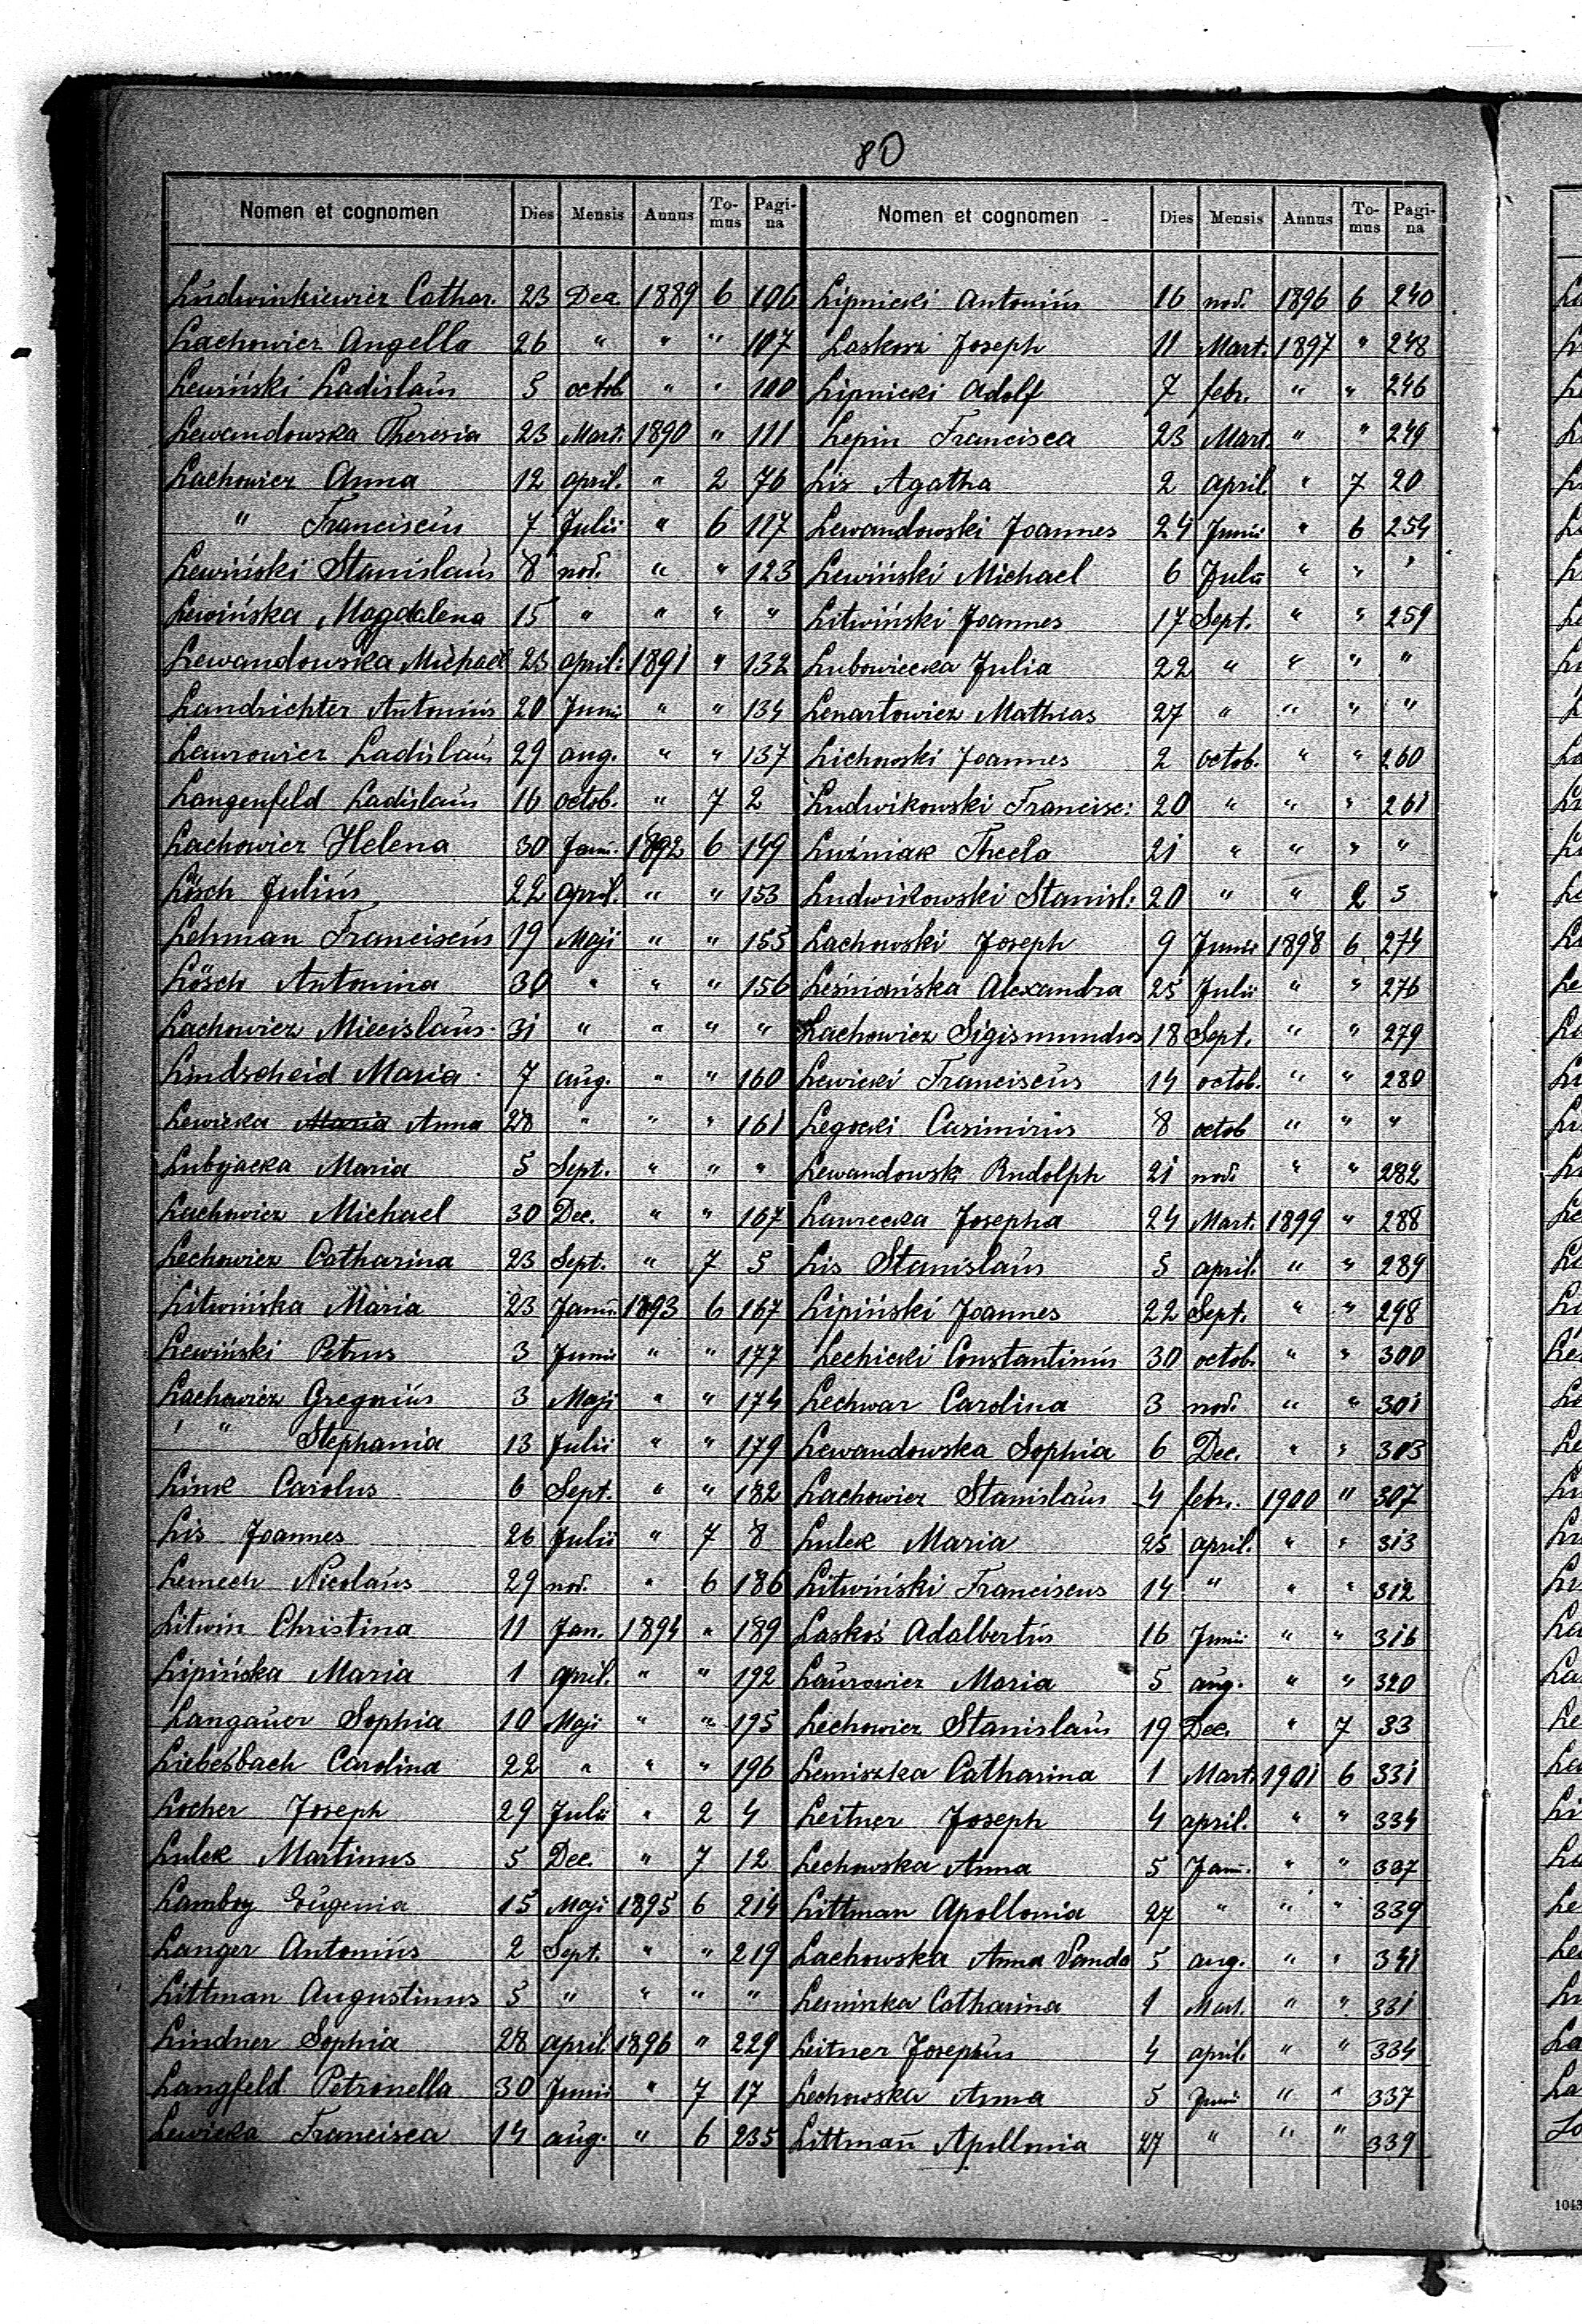 80
Nomen et cognomen Dies Mensis Annus To-mus Pagi-na Nomen et cognomen Dies Mensis Annus To-mus Pagi-na
Ludwinkiewicz Cathar. 23 Dec. 1889 6 106 Lipnicki Antoniús 16 nov. 1896 6 240
Lachowicz Angella 26 " " " 107 Laskosz Joseph 11 Mart. 1897 " 248
Lewiński Ladislaús 5 octob. " " 100 Lipnicki Adolf 7 febr. " " 246
Lewandowska Theresia 23 Mart. 1890 " 111 Lepin Francisca 23 Mart. " " 249
Lachowicz Anna 12 april. " 2 76 Lis Agatha 2 april. " 7 20
" Franciscús 7 Julii " 6 117 Lewandowski Joannes 24 Junii " 6 254
Lewiński Stanislaús 8 nov. " " 123 Lewiński Michael 6 Julii " " "
Lewińska Magdalena 15 " " " " Litwiński Joannes 17 Sept. " " 259
Lewandowska Michael 23 april: 1891 " 132 Lubowiecka Julia 22 " " " "
Landrichter Antoniús 20 Junii " " 134 Lenartowicz Mathias 27 " " " "
Laurowicz Ladislaús 29 aug. " " 137 Lichowski Joannes 2 octob. " " 260
Langenfeld Ladislaús 16 octob. " 7 2 Ludwikowski Francisc: 20 " " " 261
Lachowicz Helena 30 Janu. 1892 6 149 Luźniak Thecla 21 " " " "
Lösch Juliús 22 april. " " 153 Ludwikowski Stanisl: 20 " " 2 5
Lehman Franciscús 19 Maji " " 155 Lachowski Joseph 9 Junii 1898 6 274
Lösch Antonina 30 " " " 156 Leśniańska Alexandra 25 Julii " " 276
Lachowicz Miecislaús 31 " " " " Lachowicz Sigismundus 18 Sept. " " 279
Lindscheid Maria 7 aúg. " " 160 Lewicki Franciscús 14 octob. " " 280
Lewicka Maria Anna 28 " " " 161 Legocki Casimirús 8 octob " " "
Lubyjacka Maria 5 Sept. " " " Lewandowski Rudolph 21 nov. " " 282
Lachowicz Michael 30 Dec. " " 167 Laurecka Josepha 24 Mart. 1899 " 288
Lechowicz Catharina 23 Sept. " 7 5 Lis Stanislaús 5 april. " " 289
Litwińska Maria 23 Janú. 1893 6 167 Lipiński Joannes 22 Sept. " " 298
Lewiński Petrus 3 Junii " " 177 Lechicki Constantinús 30 octob. " " 300
Lachowicz Gregoriús 3 Maji " " 174 Lechwar Carolina 3 nov. " " 301
" Stephania 13 Julii " " 179 Lewandowska Sophia 6 Dec. " " 303
Link Carolus 6 Sept. " " 182 Lachowicz Stanislaús 4 febr. 1900 " 307
Lis Joannes 26 Julii " 7 8 Lulek Maria 25 april. " " 313
Lemech Nicolaús 29 nov. " 6 186 Litwiński Franciscus 14 " " " 312
Litwin Christina 11 Jan. 1894 " 189 Laskoś Adalbertús 16 Junii " " 316
Lipińska Maria 1 april. " " 192 Laúrowicz Maria 5 aúg. " " 320
Langaúer Sophia 10 Maji " " 195 Lechowicz Stanislaús 19 Dec. " 7 33
Liebesbach Carolina 22 " " " 196 Lemiszka Catharina 1 Mart. 1901 6 331
Locher Joseph 29 Julii " 2 4 Leitner Joseph 4 april. " " 334
Lulek Martinus 5 Dec. " 7 12 Lechowska Anna 5 " " 337
Lamboy Eúgenia 15 Maji 1895 6 214 Littman Apollonia 27 " " " 339
Langer Antoniús 2 Sept. " " 219 Lachowska Anna Vanda 5 aug. " " 341
Littman Augustinus 5 " " " " Lemiszka Catharina 1 Mart. " " 331
Lindner Sophia 28 april. 1896 " 229 Leitner Josephús 4 april. " " 334
Langfeld Petronella 30 Junii " 7 17 Lechowska Anna 5 Junii " " 337
Lewicka Francisca 14 aúg. " 6 235 Littman Apollonia 27 " " " 339